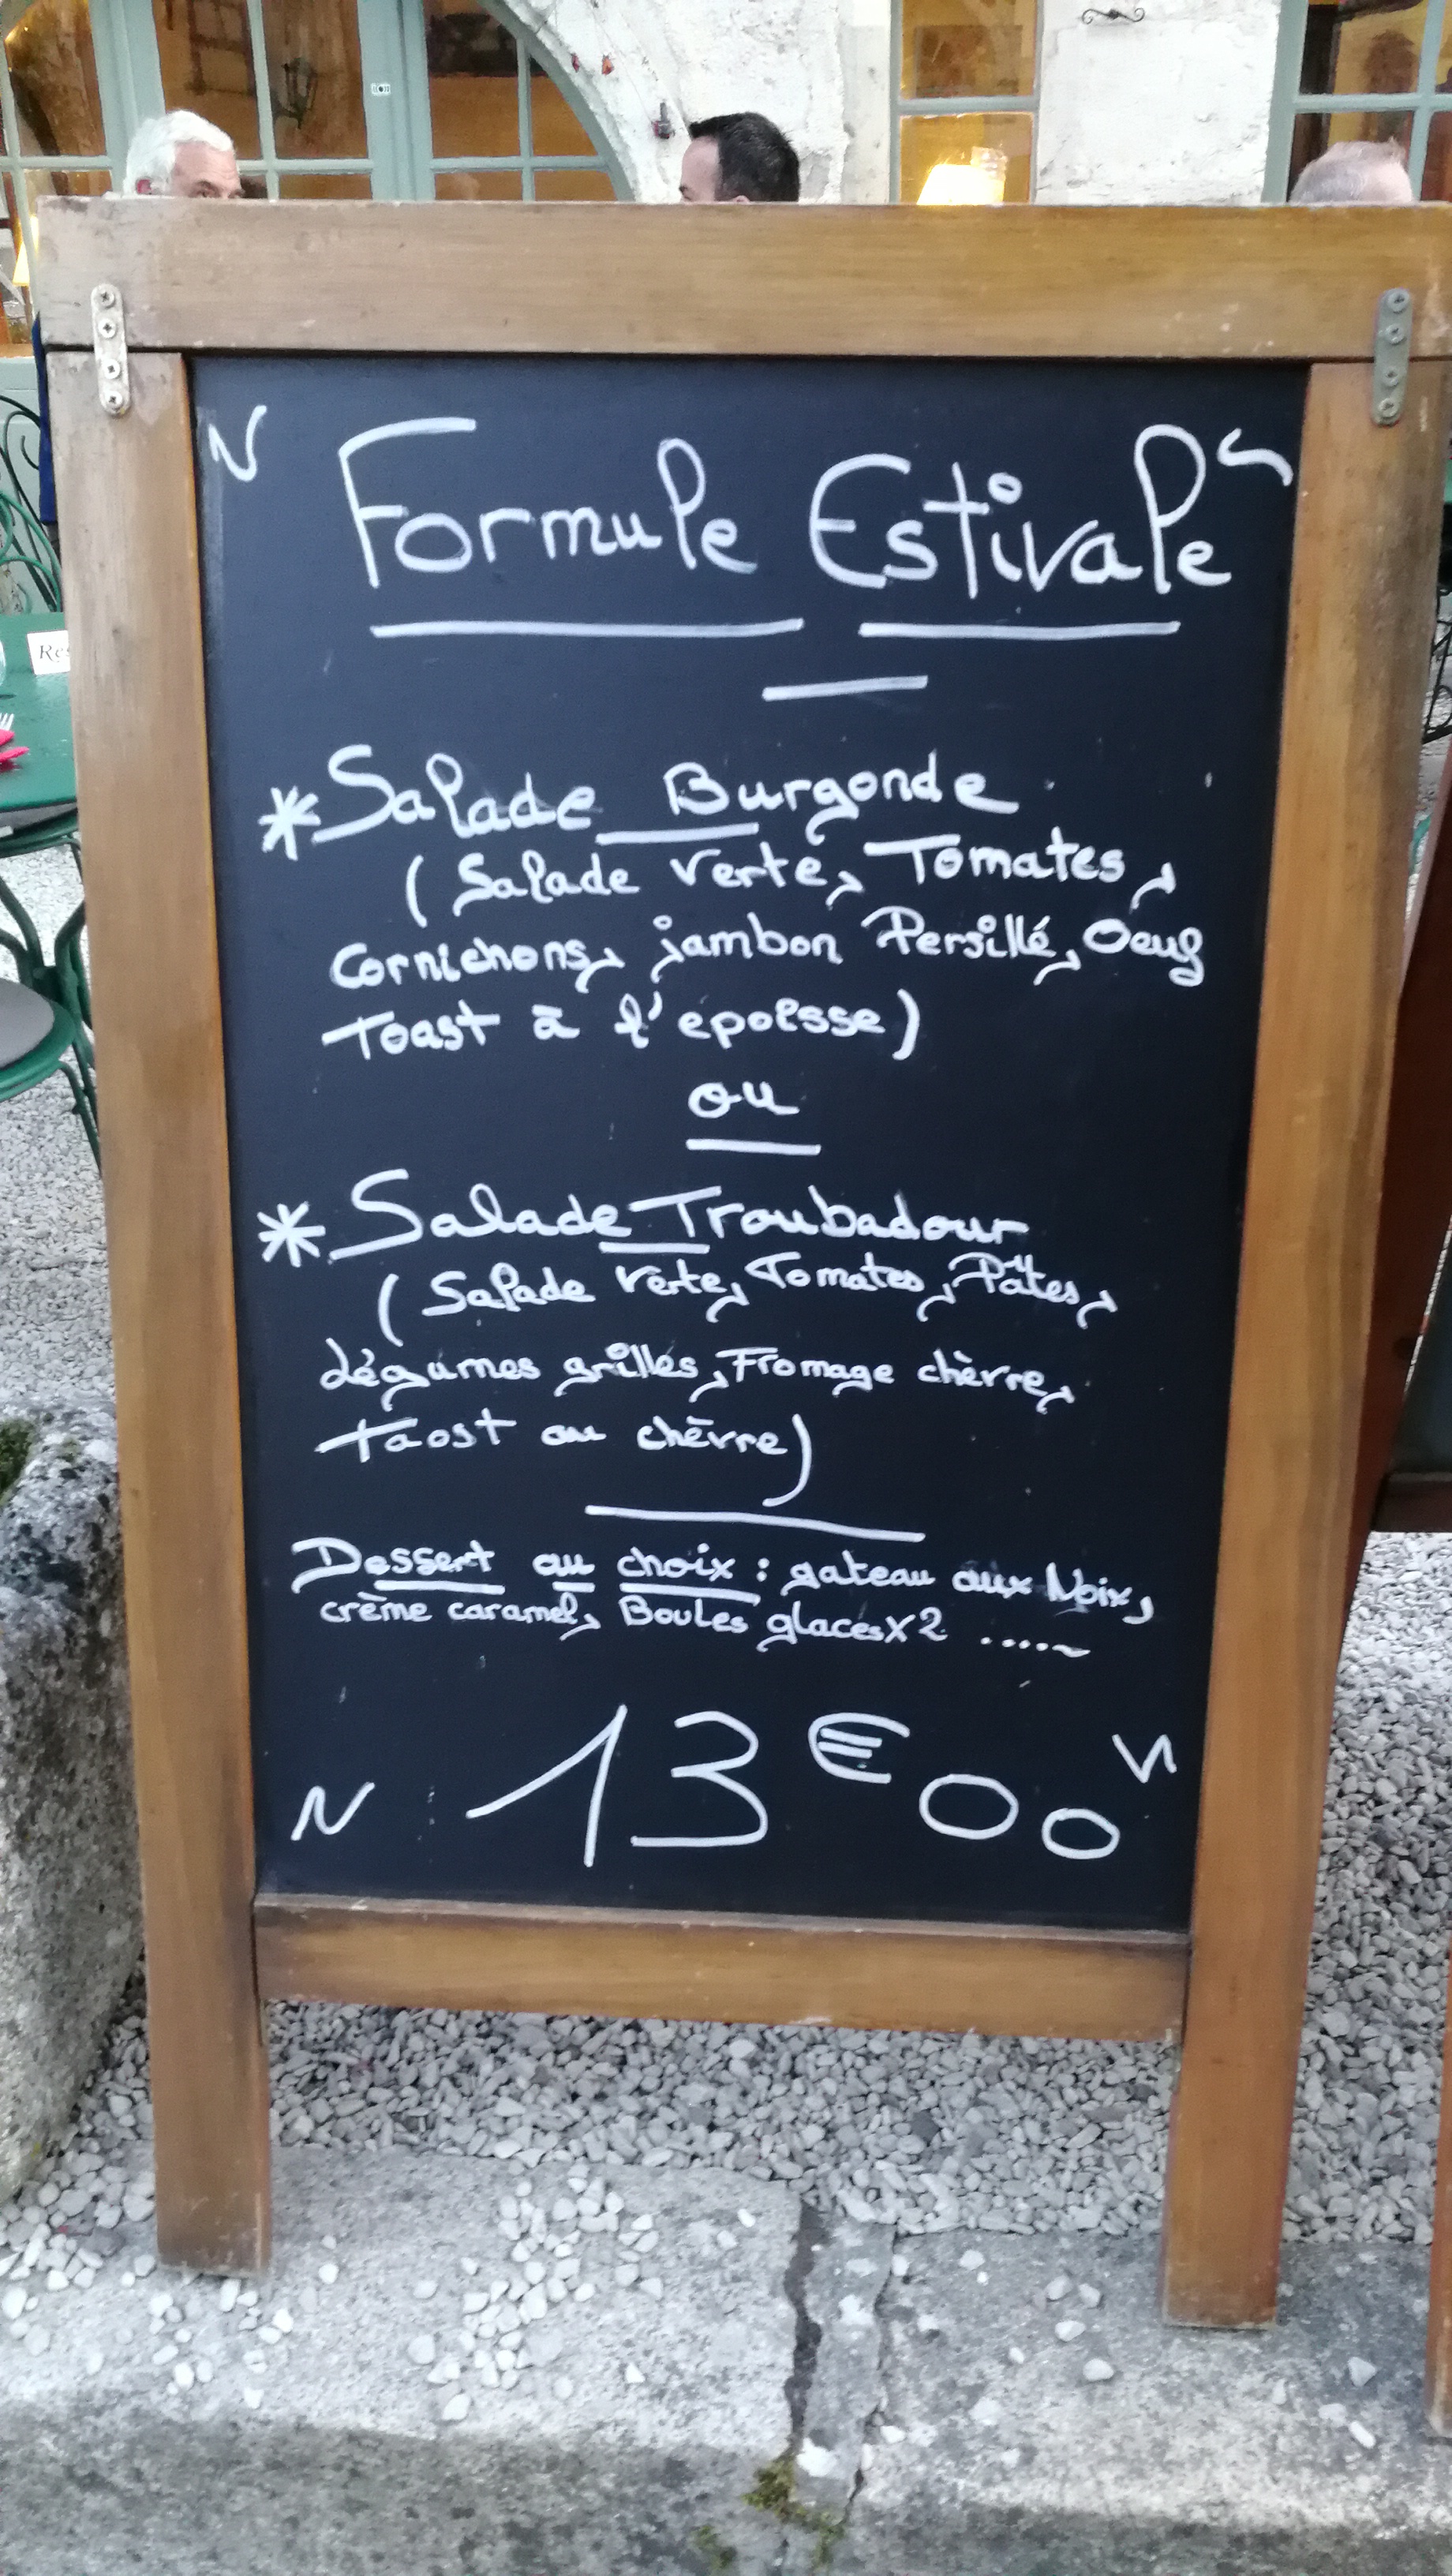 Formule Estivale
*Salade Burgonde
(Salade verte, Tomates,
Cornichons, jambon Persillé, Oeuf
Toast à l'epoisse)
ou
*Salade Troubadour
(Salade verte, Tomates, Pâtes,
légumes grillés, Fromage chèvre,
taost au chèvre)
Dessert au choix : gateau aux Noix,
crème caramel, Boules glacésX2 .....
13€00
Res